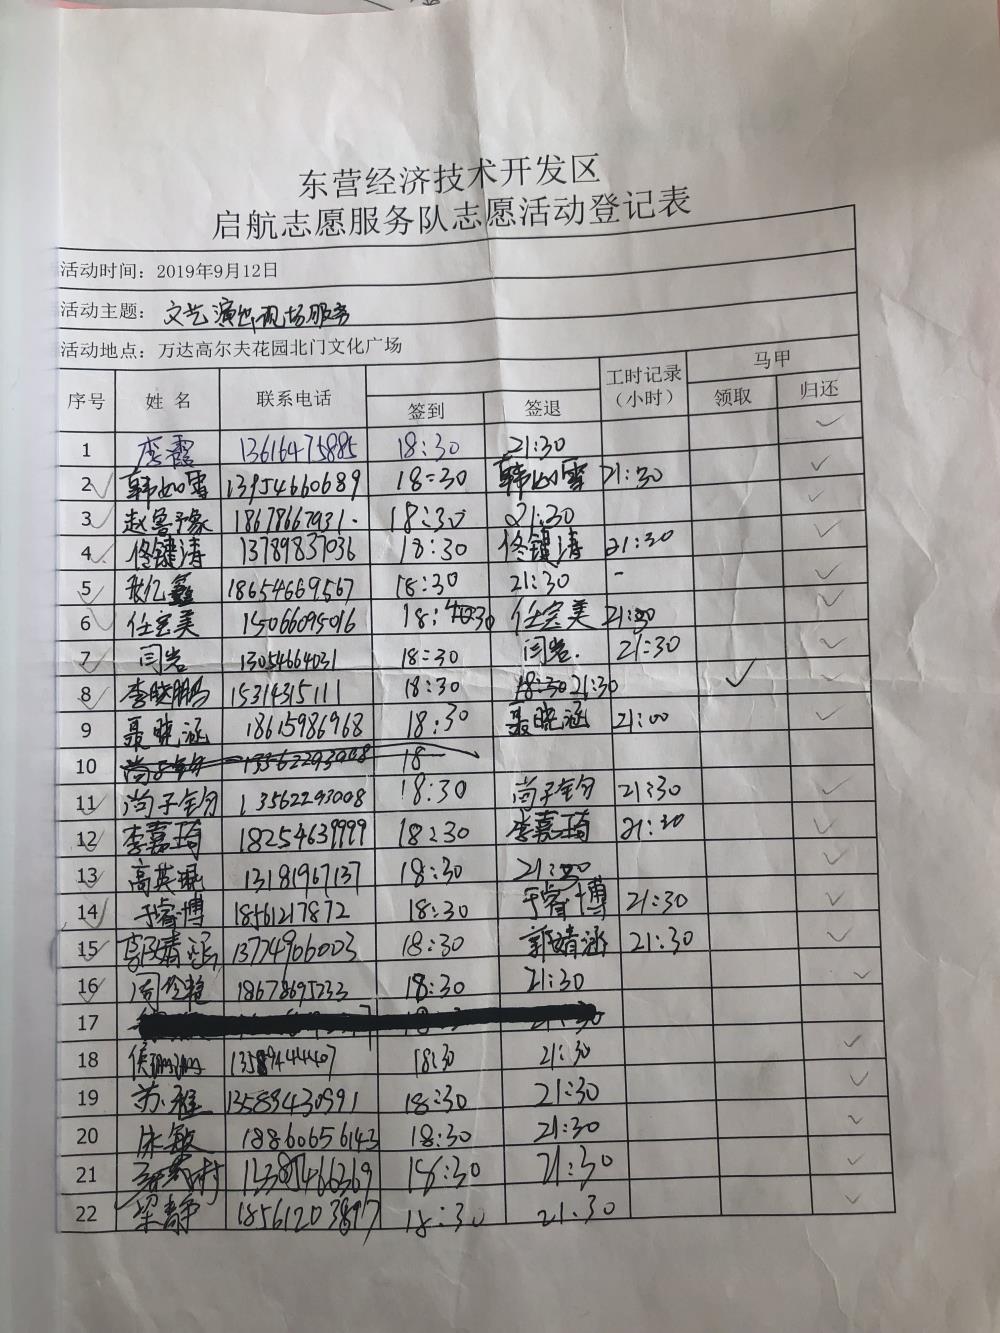 东营经济技术开发区
启航志愿服务队志愿活动登记表
活动时间：2019年9月12日
活动主题：文艺演出现场服务
活动地点：万达高尔夫花园北门文化广场
序号 姓名 联系电话 签到 签退 工时记录（小时） 马甲 领取 归还
1 李霞 13616475885 18:30 21:30
2 韩如雪 13954660689 18:30 韩如雪 21:30
3 赵鲁豫 18678667931 18:30 21:30
4 佟键涛 13789837036 18:30 佟键涛 21:30
5 张亿鑫 18654669567 18:30 21:30
6 任宝美 15066095016 18:30 任宝美
7 闫岩 13054664031 18:30 闫岩 21:30
8 李晓鹏 15314315111 18:30 18:30 21:30
9 聂晓涵 18615986968 18:30 聂晓涵 21:00
10 尚子钧 13562293008 18
11 尚子钧 13562293008 18:30 尚子钧 21:30
12 李嘉琦 18254639999 18:30 李嘉琦 21:30
13 高英琨 13181967137 18:30
14 于睿博 18561217872 18:30 于睿博 21:30
15 郭婧涵 13774906003 18:30 郭婧涵 21:30
16 18678695233 18:30 21:30
17
18 侯珊珊 13589444407 18:30 21:30
19 苏雅 13589430991 18:30 21:30
20 敏 18860656143 18:30 21:30
21 13385466369 18:30 21:30
22 梁静 18561203897 18:30 21:30